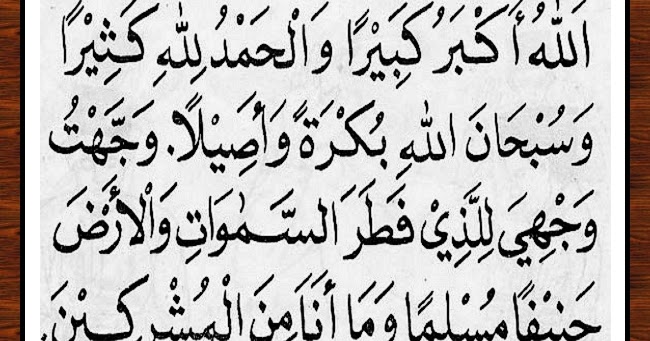 اَللهُ أَكْبَرُ كَبِيْرًا وَالْحَمْدُ لِلهِ كَثِيْرًا
وَسُبْحَانَ اللهِ بُكْرَةً وَأَصِيْلًا. وَجَّهْتُ
وَجْهِيَ لِلَّذِيْ فَطَرَ السَّمٰوَاتِ وَالْأَرْضَ
حَنِيْفًا مُسْلِمًا وَمَا أَنَا مِنَ الْمُشْرِكِيْنَ.